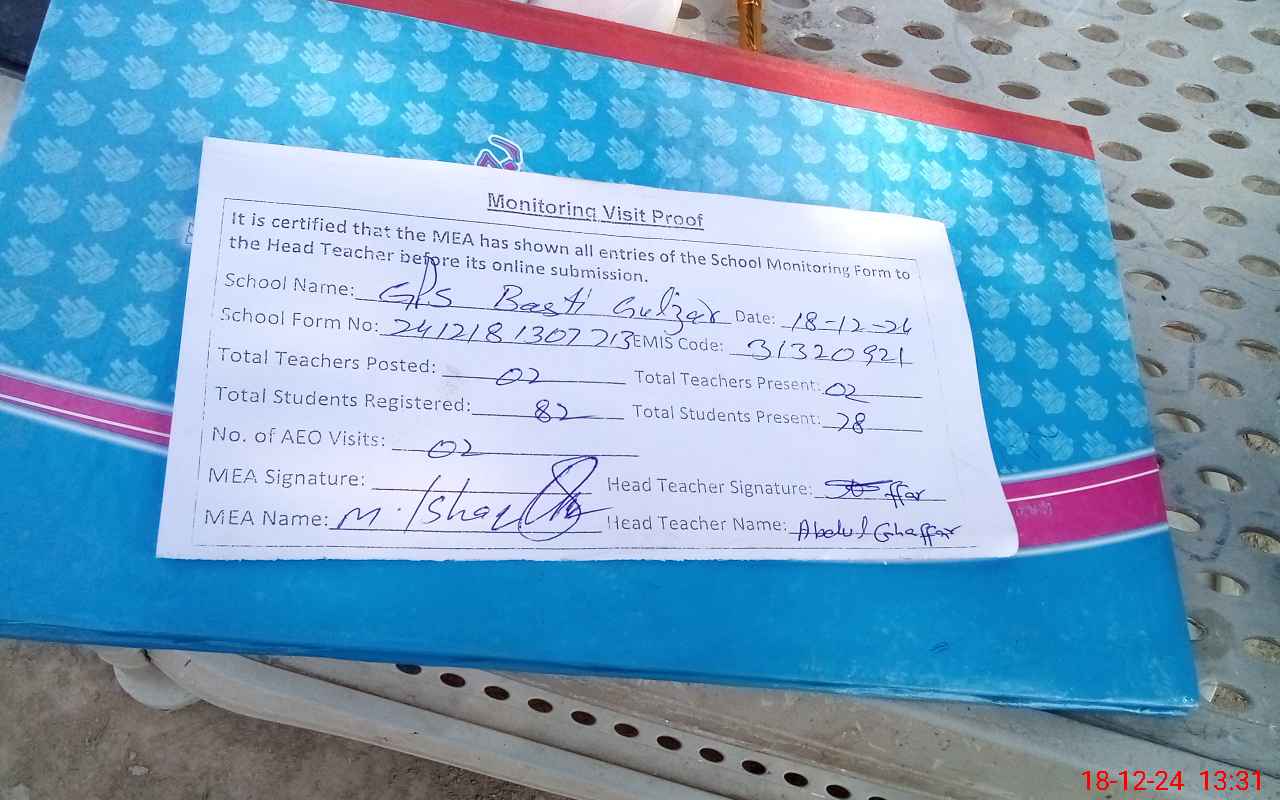 Monitoring Visit Proof
It is certified that the MEA has shown all entries of the School Monitoring Form to
the Head Teacher before its online submission.
School Name: GPS Basti Gulzar Date: 18-12-24
School Form No: 2412181307713 EMIS Code: 31320921
Total Teachers Posted: 02 Total Teachers Present: 02
Total Students Registered: 82 Total Students Present: 28
No. of AEO Visits: 02
MEA Signature: Head Teacher Signature: ffar
MEA Name: M. Ishaq Head Teacher Name: Abdul Ghaffar
18-12-24 13:31